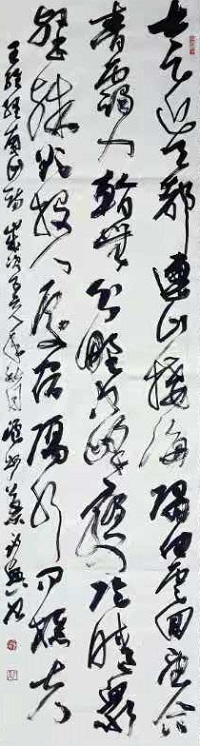 太乙近天都連山接海隅白雲回望合
青靄入看無分野中峰變陰晴衆
壑殊欲投人處宿隔水問樵夫
王維終南山詩歲次